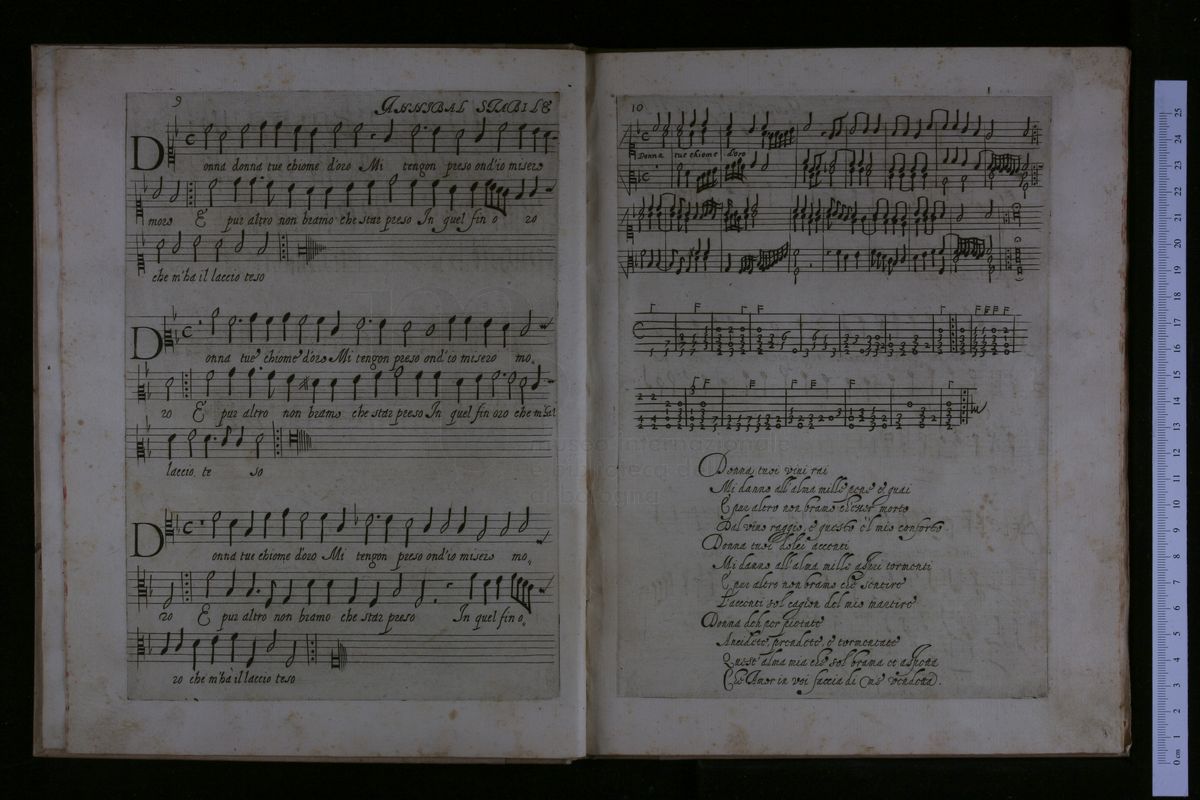 9
ANNIBAL STABILE
Donna donna tue chiome d'oro Mi tengon preso ond'io misero
moro E pur altro non bramo che star preso In quel fin oro
che m'ha il laccio teso
Donna tue chiome d'oro Mi tengon preso ond'io misero mo
ro E pur altro non bramo che star preso In quel fin oro che m'ha il
laccio te so
Donna tue chiome d'oro Mi tengon preso ond'io misero mo
ro E pur altro non bramo che star preso In quel fin o
ro che m'hà il laccio teso
10
Donna tue chiome d'oro
Donna tuoi vivi rai
Mi danno all'alma mille pene e guai
E pur altro non bramo
Dal vivo raggio, e questo è'l mio conforto.
Donna tuoi dolci accenti
Mi danno all'alma mille aspri tormenti
E pur altro non bramo che sentire
L'accenti sol cagion del mio martire
Donna deh per pietate
Ancidete, prendete, e tormentate
Quest'alma mia che sol brama et aspetta
Che Amor in voi faccia di me vendetta.